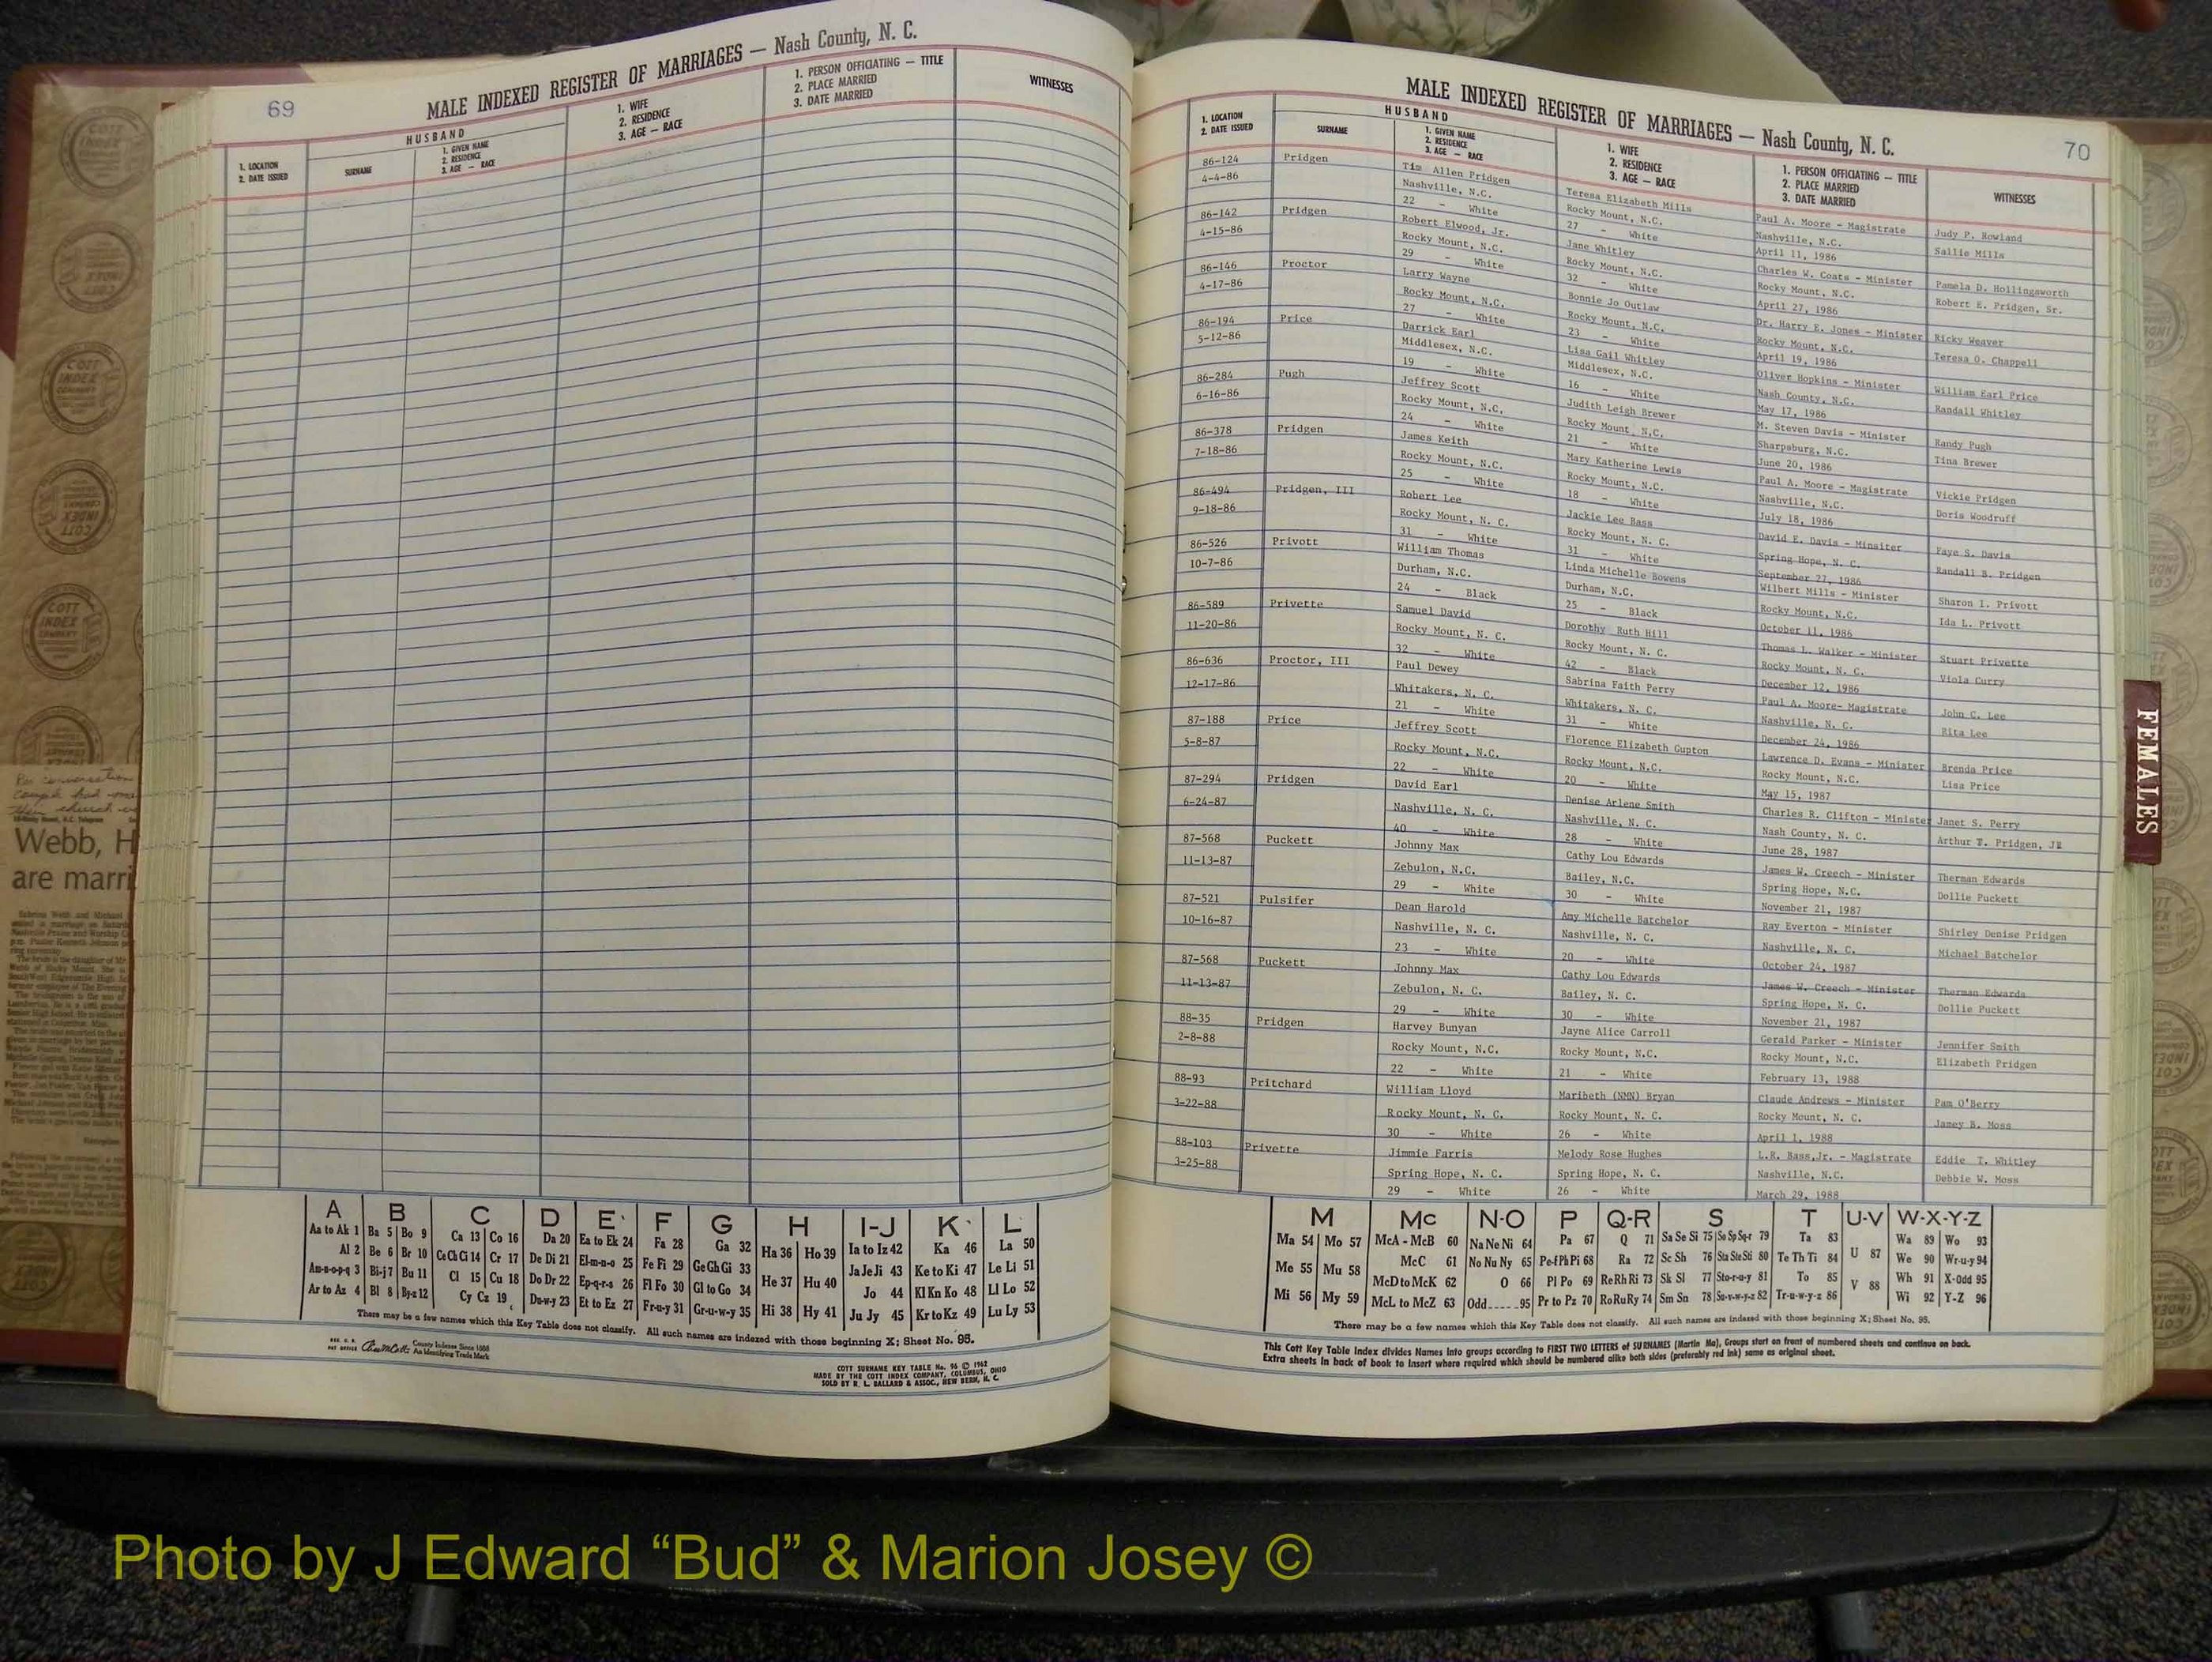 69
MALE INDEXED REGISTER OF MARRIAGES — Nash County, N. C.
1. LOCATION
2. DATE ISSUED
HUSBAND
SURNAME
1. GIVEN NAME
2. RESIDENCE
3. AGE — RACE
1. WIFE
2. RESIDENCE
3. AGE — RACE
1. PERSON OFFICIATING — TITLE
2. PLACE MARRIED
3. DATE MARRIED
WITNESSES
A B C D E F G H I-J K L
Aa to Ak 1 Ba 5 Bo 9 Ca 13 Co 16 Da 20 Ea to Ek 24 Fa 28 Ga 32 Ha 36 Ho 39 Ia to Iz 42 Ka 46 La 50
Al 2 Be 6 Br 10 Ce Ch Ci 14 Cr 17 De Di 21 El-m-n-o 25 Fe Fi 29 Ge Gh Gi 33 He 37 Hu 40 Ja Je Ji 43 Ke to Ki 47 Le Li 51
Am-n-o-p-q 3 Bi-j 7 Bu 11 Cl 15 Cu 18 Do Dr 22 Ep-q-r-s 26 Fl Fo 30 Gl to Go 34 Hi 38 Hy 41 Jo 44 Kl Kn Ko 48 Ll Lo 52
Ar to Az 4 Bl 8 By-z 12 Cy Cz 19 Du-w-y 23 Et to Ez 27 Fr-u-y 31 Gr-u-w-y 35 Ju Jy 45 Kr to Kz 49 Lu Ly 53
There may be a few names which this Key Table does not classify. All such names are indexed with those beginning X; Sheet No. 95.
County Indexes Since 1888
An Identifying Trade Mark
COTT SURNAME KEY TABLE No. 96 © 1962
MADE BY THE COTT INDEX COMPANY, COLUMBUS, OHIO
SOLD BY R. L. BALLARD & ASSOC., NEW BERN, N. C.
MALE INDEXED REGISTER OF MARRIAGES — Nash County, N. C.
70
1. LOCATION
2. DATE ISSUED
HUSBAND
SURNAME
1. GIVEN NAME
2. RESIDENCE
3. AGE — RACE
1. WIFE
2. RESIDENCE
3. AGE — RACE
1. PERSON OFFICIATING — TITLE
2. PLACE MARRIED
3. DATE MARRIED
WITNESSES
86-124 Pridgen Tim Allen Pridgen Teresa Elizabeth Mills Paul A. Moore - Magistrate Judy P. Rowland
4-4-86 Nashville, N.C. Rocky Mount, N.C. Nashville, N.C. Sallie Mills
22 - White 27 - White April 11, 1986
86-142 Pridgen Robert Elwood, Jr. Jane Whitley Charles W. Coats - Minister Pamela D. Hollingsworth
4-15-86 Rocky Mount, N.C. Rocky Mount, N.C. Rocky Mount, N.C. Robert E. Pridgen, Sr.
29 - White 32 - White April 27, 1986
86-146 Proctor Larry Wayne Bonnie Jo Outlaw Dr. Harry E. Jones - Minister Ricky Weaver
4-17-86 Rocky Mount, N.C. Rocky Mount, N.C. Rocky Mount, N.C. Teresa O. Chappell
27 - White 23 - White April 19, 1986
86-194 Price Darrick Earl Lisa Gail Whitley Oliver Hopkins - Minister William Earl Price
5-12-86 Middlesex, N.C. Middlesex, N.C. Nash County, N.C. Randall Whitley
19 - White 16 - White May 17, 1986
86-284 Pugh Jeffrey Scott Judith Leigh Brewer M. Steven Davis - Minister Randy Pugh
6-16-86 Rocky Mount, N.C. Rocky Mount, N.C. Sharpsburg, N.C. Tina Brewer
24 - White 21 - White June 20, 1986
86-378 Pridgen James Keith Mary Katherine Lewis Paul A. Moore - Magistrate Vickie Pridgen
7-18-86 Rocky Mount, N.C. Rocky Mount, N.C. Nashville, N.C. Doris Woodruff
25 - White 18 - White July 18, 1986
86-494 Pridgen, III Robert Lee Jackie Lee Bass David E. Davis - Minsiter Faye S. Davis
9-18-86 Rocky Mount, N. C. Rocky Mount, N. C. Spring Hope, N. C. Randall B. Pridgen
31 - White 31 - White September 27, 1986
86-526 Privott William Thomas Linda Michelle Bowens Wilbert Mills - Minister Sharon L. Privott
10-7-86 Durham, N.C. Durham, N.C. Rocky Mount, N.C. Ida L. Privott
24 - Black 25 - Black October 11, 1986
86-589 Privette Samuel David Dorothy Ruth Hill Thomas L. Walker - Minister Stuart Privette
11-20-86 Rocky Mount, N. C. Rocky Mount, N. C. Rocky Mount, N. C. Viola Curry
32 - White 42 - Black December 12, 1986
86-636 Proctor, III Paul Dewey Sabrina Faith Perry Paul A. Moore- Magistrate John C. Lee
12-17-86 Whitakers, N. C. Whitakers, N. C. Nashville, N. C. Rita Lee
21 - White 31 - White December 24, 1986
87-188 Price Jeffrey Scott Florence Elizabeth Gupton Lawrence D. Evans - Minister Brenda Price
5-8-87 Rocky Mount, N.C. Rocky Mount, N.C. Rocky Mount, N.C. Lisa Price
22 - White 20 - White May 15, 1987
87-294 Pridgen David Earl Denise Arlene Smith Charles R. Clifton - Minister Janet S. Perry
6-24-87 Nashville, N. C. Nashville, N. C. Nash County, N. C. Arthur T. Pridgen, JR
40 - White 28 - White June 28, 1987
87-568 Puckett Johnny Max Cathy Lou Edwards James W. Creech - Minister Therman Edwards
11-13-87 Zebulon, N.C. Bailey, N.C. Spring Hope, N.C. Dollie Puckett
29 - White 30 - White November 21, 1987
87-521 Pulsifer Dean Harold Amy Michelle Batchelor Ray Everton - Minister Shirley Denise Pridgen
10-16-87 Nashville, N. C. Nashville, N. C. Nashville, N. C. Michael Batchelor
23 - White 20 - White October 24, 1987
87-568 Puckett Johnny Max Cathy Lou Edwards James W. Creech - Minister Therman Edwards
11-13-87 Zebulon, N. C. Bailey, N. C. Spring Hope, N. C. Dollie Puckett
29 - White 30 - White November 21, 1987
88-35 Pridgen Harvey Bunyan Jayne Alice Carroll Gerald Parker - Minister Jennifer Smith
2-8-88 Rocky Mount, N.C. Rocky Mount, N.C. Rocky Mount, N.C. Elizabeth Pridgen
22 - White 21 - White February 13, 1988
88-93 Pritchard William Lloyd Maribeth (NMN) Bryan Claude Andrews - Minister Pam O'Berry
3-22-88 Rocky Mount, N. C. Rocky Mount, N. C. Rocky Mount, N. C. Jamey B. Moss
30 - White 26 - White April 1, 1988
88-103 Privette Jimmie Farris Melody Rose Hughes L.R. Bass,Jr. - Magistrate Eddie T. Whitley
3-25-88 Spring Hope, N. C. Spring Hope, N. C. Nashville, N.C. Debbie W. Moss
29 - White 26 - White March 29, 1988
M Mc N-O P Q-R S T U-V W-X-Y-Z
Ma 54 Mo 57 McA - McB 60 Na Ne Ni 64 Pa 67 Q 71 Sa Se Si 75 So Sp Sq-r 79 Ta 83 U 87 Wa 89 Wo 93
Me 55 Mu 58 McC 61 No Nu Ny 65 Pe-f Ph Pi 68 Ra 72 Sc Sh 76 Sta Ste Sti 80 Te Th Ti 84 V 88 We 90 Wr-u-y 94
McD to McK 62 O 66 Pl Po 69 Re Rh Ri 73 Sk Sl 77 Sto-r-u-y 81 To 85 Wh 91 X-Odd 95
Mi 56 My 59 McL to McZ 63 Odd 95 Pr to Pz 70 Ro Ru Ry 74 Sm Sn 78 Su-v-w-y-z 82 Tr-u-w-y-z 86 Wi 92 Y-Z 96
There may be a few names which this Key Table does not classify. All such names are indexed with those beginning X; Sheet No. 95.
This Cott Key Table Index divides Names into groups according to FIRST TWO LETTERS of SURNAMES (Martin Ma), Groups start on front of numbered sheets and continue on back.
Extra sheets in back of book to insert where required which should be numbered alike both sides (preferably red ink) same as original sheet.
FEMALES
COTT
INDEX
COMPANY
Webb, H
are marri
Photo by J Edward “Bud” & Marion Josey ©